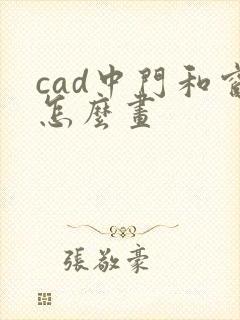 cad中門和
怎麼畫
張敬豪